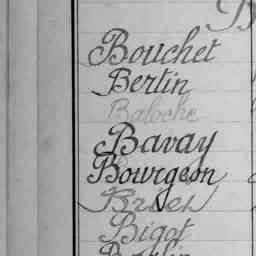 Bouchet
Bertin
Baloche
Bavay
Bourgeon
Bigot